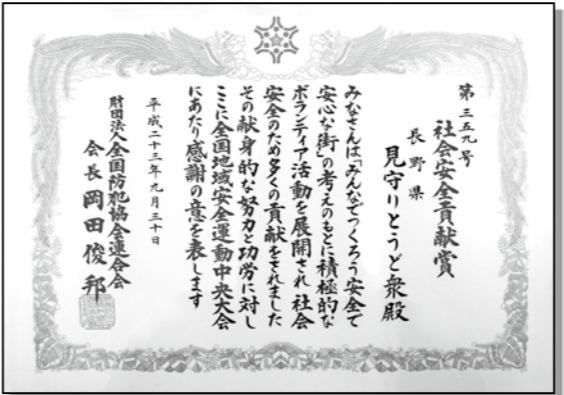 第三五九号
社会安全貢献賞
長野県
見守りとうど衆殿
みなさんは「みんなでつくろう安全で
安心な街」の考えのもとに積極的な
ボランティア活動を展開され社会
安全のため多くの貢献をされました
その献身的な努力と功労に対し
ここに全国地域安全運動中央大会
にあたり感謝の意を表します
平成二十三年九月三十日
財団法人全国防犯協会連合会
会長岡田俊邦